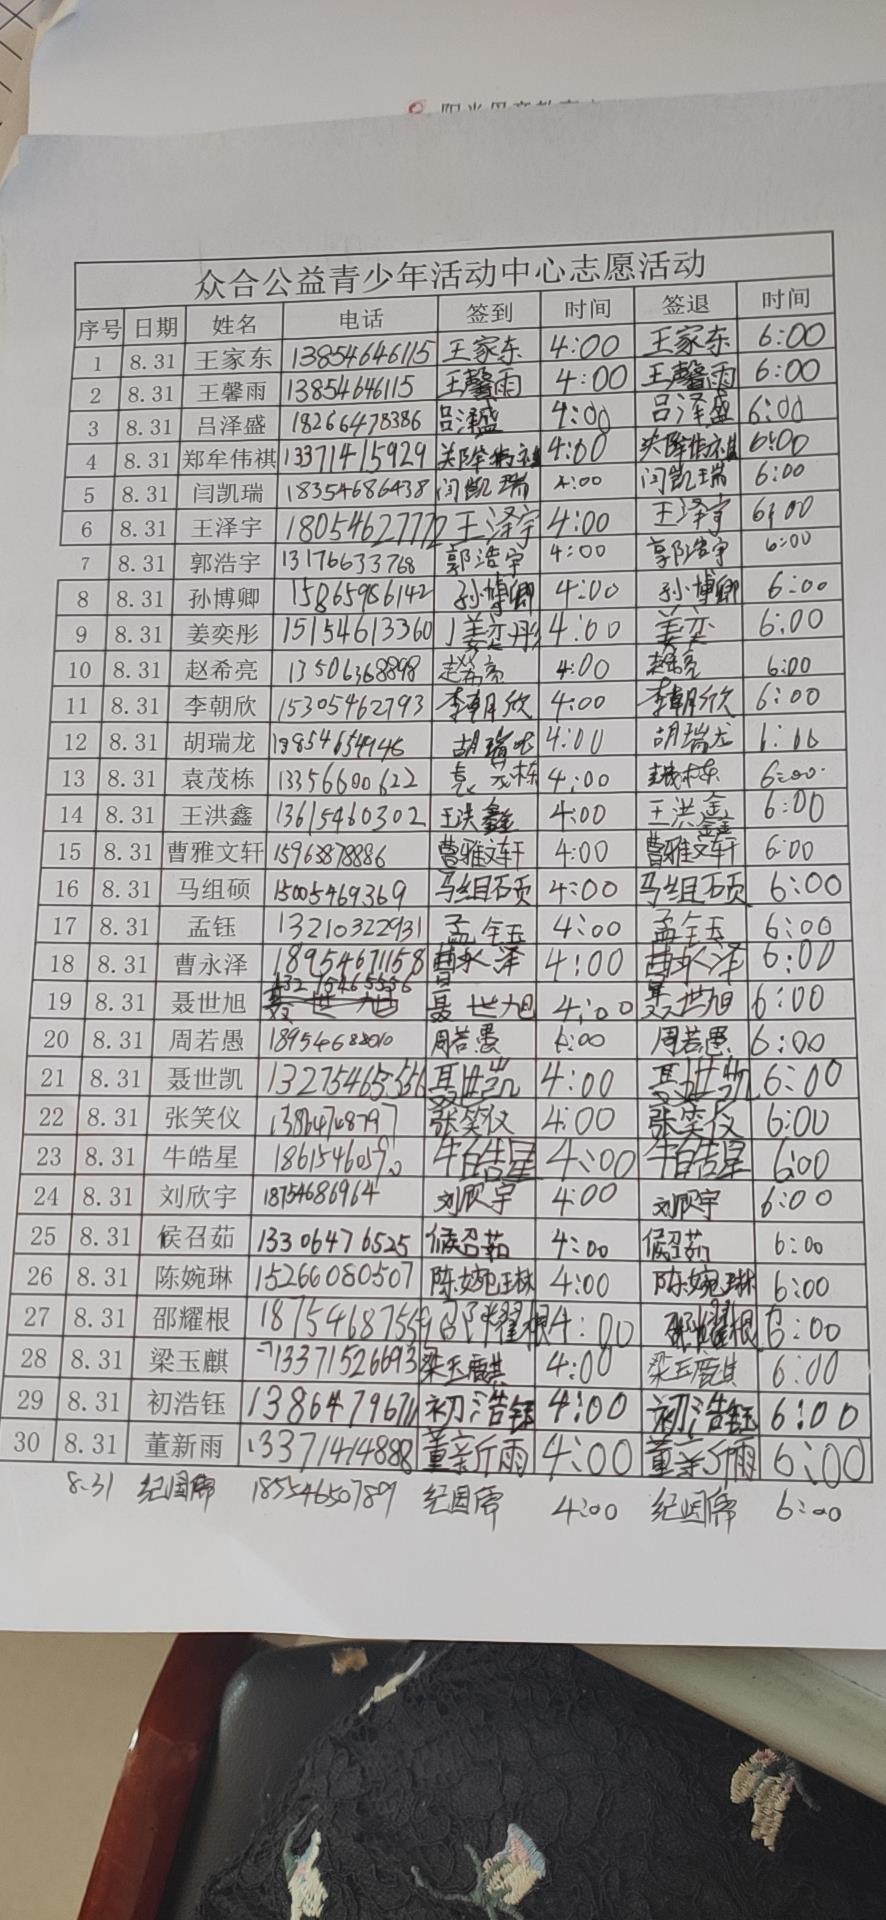 众合公益青少年活动中心志愿活动
序号 日期 姓名 电话 签到 时间 签退 时间
1 8.31 王家东 13854646115 王家东 4:00 王家东 6:00
2 8.31 王馨雨 13854646115 王馨雨 4:00 王馨雨 6:00
3 8.31 吕泽盛 18266478386 吕泽盛 4:00 吕泽盛 6:00
4 8.31 郑牟伟祺 13371415929 4:00 6:00
5 8.31 闫凯瑞 18354686438 闫凯瑞 4:00 闫凯瑞 6:00
6 8.31 王泽宇 18054627772 王泽宇 4:00 王泽宇 6:00
7 8.31 郭浩宇 13176633768 郭浩宇 4:00 郭浩宇 6:00
8 8.31 孙博卿 15865986142 孙博卿 4:00 孙博卿 6:00
9 8.31 姜奕彤 15154613360 姜奕彤 4:00 姜奕 6:00
10 8.31 赵希亮 13506368898 赵希亮 4:00 赵希亮 6:00
11 8.31 李朝欣 15305462793 李朝欣 4:00 李朝欣 6:00
12 8.31 胡瑞龙 胡瑞龙 4:00 胡瑞龙 6:00
13 8.31 袁茂栋 13356600622 袁茂栋 4:00 6:00
14 8.31 王洪鑫 13615460302 王洪鑫 4:00 王洪鑫 6:00
15 8.31 曹雅文轩 15963878886 曹雅文轩 4:00 曹雅文轩 6:00
16 8.31 马组硕 15005469369 马组硕 4:00 马组硕 6:00
17 8.31 孟钰 13210322931 孟钰 4:00 孟钰 6:00
18 8.31 曹永泽 18954671158 曹永泽 4:00 曹永泽 6:00
19 8.31 聂世旭 13275465556 聂世旭 4:00 聂世旭 6:00
20 8.31 周若愚 18954688010 周若愚 4:00 周若愚 6:00
21 8.31 聂世凯 13275465556 聂世凯 4:00 聂世凯 6:00
22 8.31 张笑仪 13864748797 张笑仪 4:00 张笑仪 6:00
23 8.31 牛皓星 牛皓星 4:00 牛皓星 6:00
24 8.31 刘欣宇 18754686964 刘欣宇 4:00 刘欣宇 6:00
25 8.31 侯召茹 13306476525 侯召茹 4:00 侯召茹 6:00
26 8.31 陈婉琳 15266080507 陈婉琳 4:00 陈婉琳 6:00
27 8.31 邵耀根 18754687559 邵耀根 4:00 邵耀根 6:00
28 8.31 梁玉麒 13371526693 梁玉麒 4:00 梁玉麒 6:00
29 8.31 初浩钰 13864796711 初浩钰 4:00 初浩钰 6:00
30 8.31 董新雨 13371414888 董新雨 4:00 董新雨 6:00
8.31 纪国席 18554650789 纪国席 4:00 纪国席 6:00